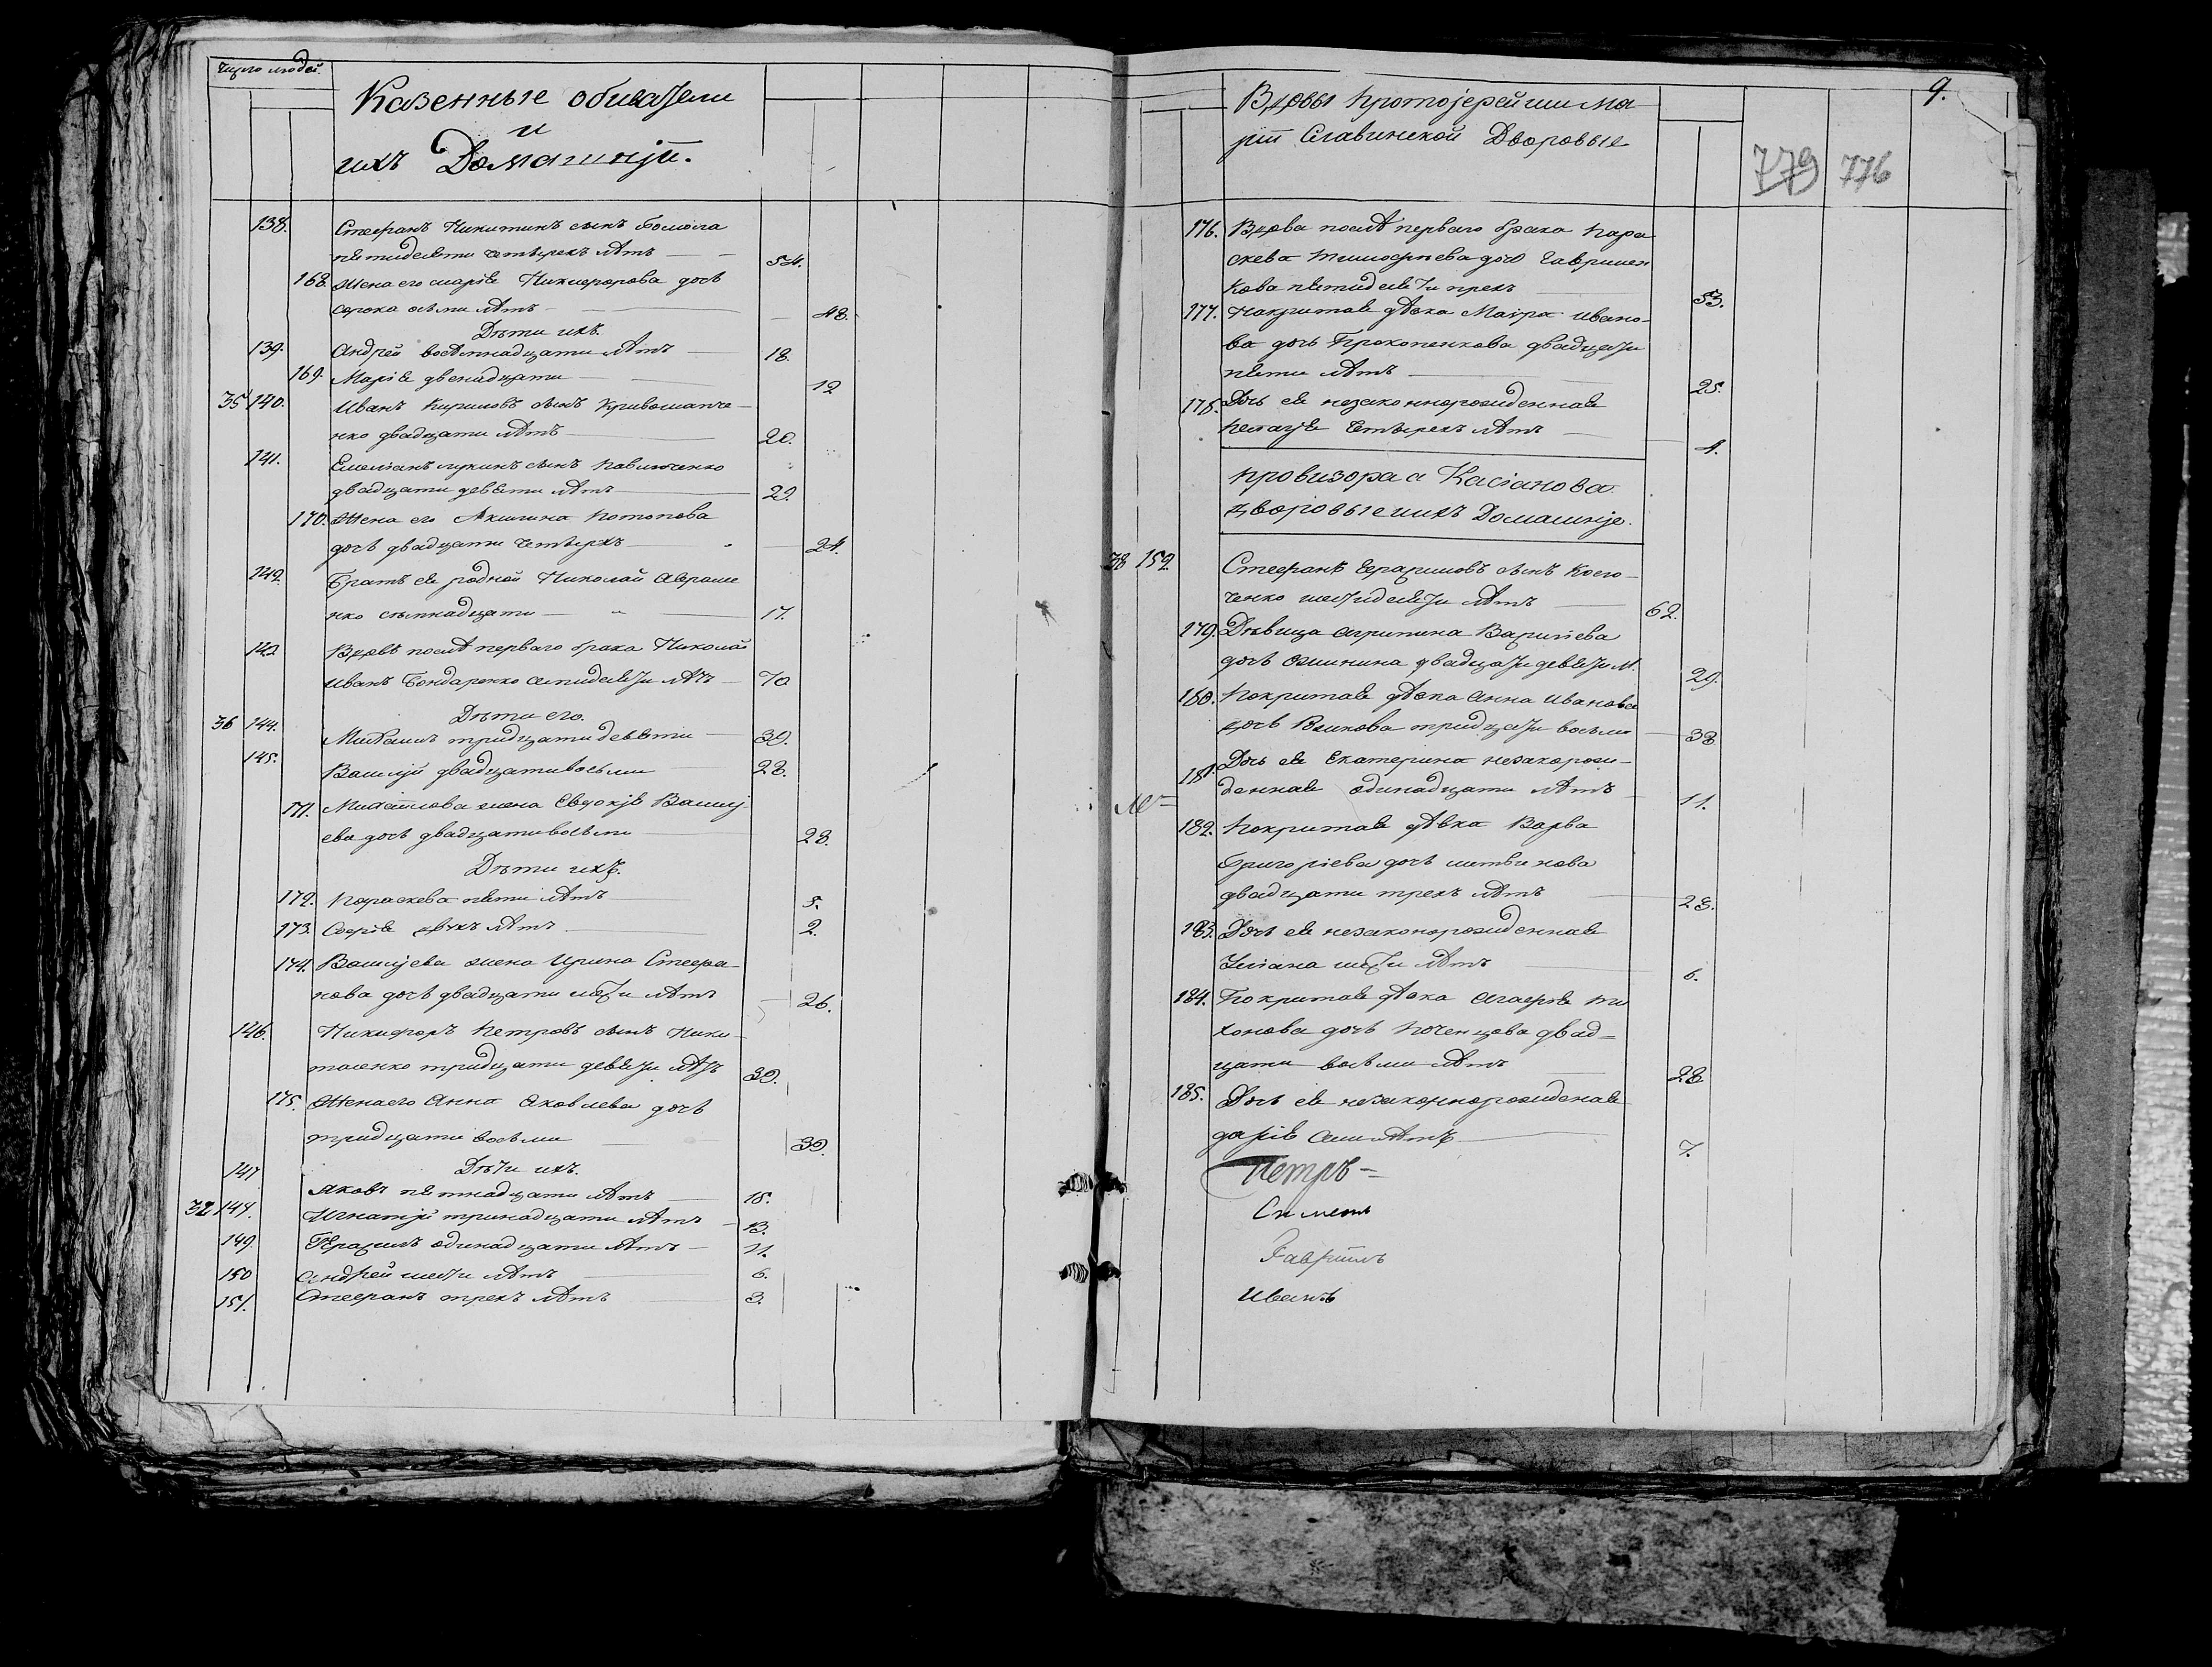 число людей.
Казенные обиватели
и
ихъ Домашнјй.
138. Стефанъ Никитинъ сынъ
пятидесяти четырехъ лѣтъ 54.
168. Жена его Марія Никифорова дочь
сорока осьми лѣтъ 48.
Дѣти ихъ.
139. Андрей восѣмнадцати лѣтъ 18.
169. Марія двенадцати 12
35 140. Иванъ Кириловъ сынъ Кривошапче-
нко двадцати лѣтъ 20.
141. Емеліанъ Лукинъ сынъ Павличенко
двадцати девяти лѣтъ 29.
170. Жена его Акилина Потопова
дочь двадцати четырехъ 24.
142. Братъ ея родной Николай Авраме
нко съмнадцати 17.
143 Вдовъ послѣ перваго брака Николай
Иванъ Бондаренко семидесяти лѣтъ 70
Дѣти его.
36 144. Михаилъ тридцати девяти 39.
145. Василјй двадцативосьми 28.
171. Михайлова жена Евдокјя Василј
ева дочь двадцативосьми 28.
Дѣти ихъ.
172. Параскева пяти лѣтъ 5.
173. Софія двухъ лѣтъ 2.
174. Василјева жена Ирина Стефа-
нова дочь двадцати шести лѣтъ 26.
146. Никифоръ Петровъ сынъ Ники-
тненко тридцати девяти лѣтъ 39.
175. Жена его Анна Яковлева дочь
тридцати восьми 39.
Дѣти ихъ.
147 Яковъ пятнадцати лѣтъ 15.
37 147. Игнатјй тринадцати лѣтъ 13.
149. Герасимъ одинадцати лѣтъ 11.
150 Андрей шести лѣтъ 6.
151. Стефанъ трехъ лѣтъ 3.
9.
Вдовы протојерейши Ма
ріи Славинской Дворовые
779 776
176. Вдова послѣ перваго брака Пара
скева Тимофѣева дочь Гавришен
кова пятидесяти трехъ 53.
177. Покритая дѣвка Маѵра Ивано-
ва дочь Прокопенкова двадцати
пяти лѣтъ 25.
178. Дочь ея незаконнорожиденная
Пелагјя четырехъ лѣтъ 4.
провизора а Касіанова
дворовые иихъ Домашнје.
38 152. Стефанъ Герасимовъ сынъ Косто-
ченко шестидесяти лѣтъ 62.
179. Дѣвица Агрипина Василіева
дочь двадцати девяти л. 29.
180. Покритая дѣвка Анна Иванова
дочь Волкова тридцати восьми 38
181. Дочь ея Екатерина незакорож-
денная одинадцати лѣтъ 11.
182. Покритая дѣвка Варва
Григоріева дочь Литвинова
двадцати трехъ лѣтъ 23.
183. Дочь ея незаконорожиденная
Уліана шести лѣтъ 6.
184. Покритая дѣвка Агафія Ти
хонова дочь Поченцова двад=
цати восьми лѣтъ 28
185. Дочь ея незаконнорожиденая
Дарія семи лѣтъ 7.
Петръ=
Симеонъ
Гавріилъ
Иванъ